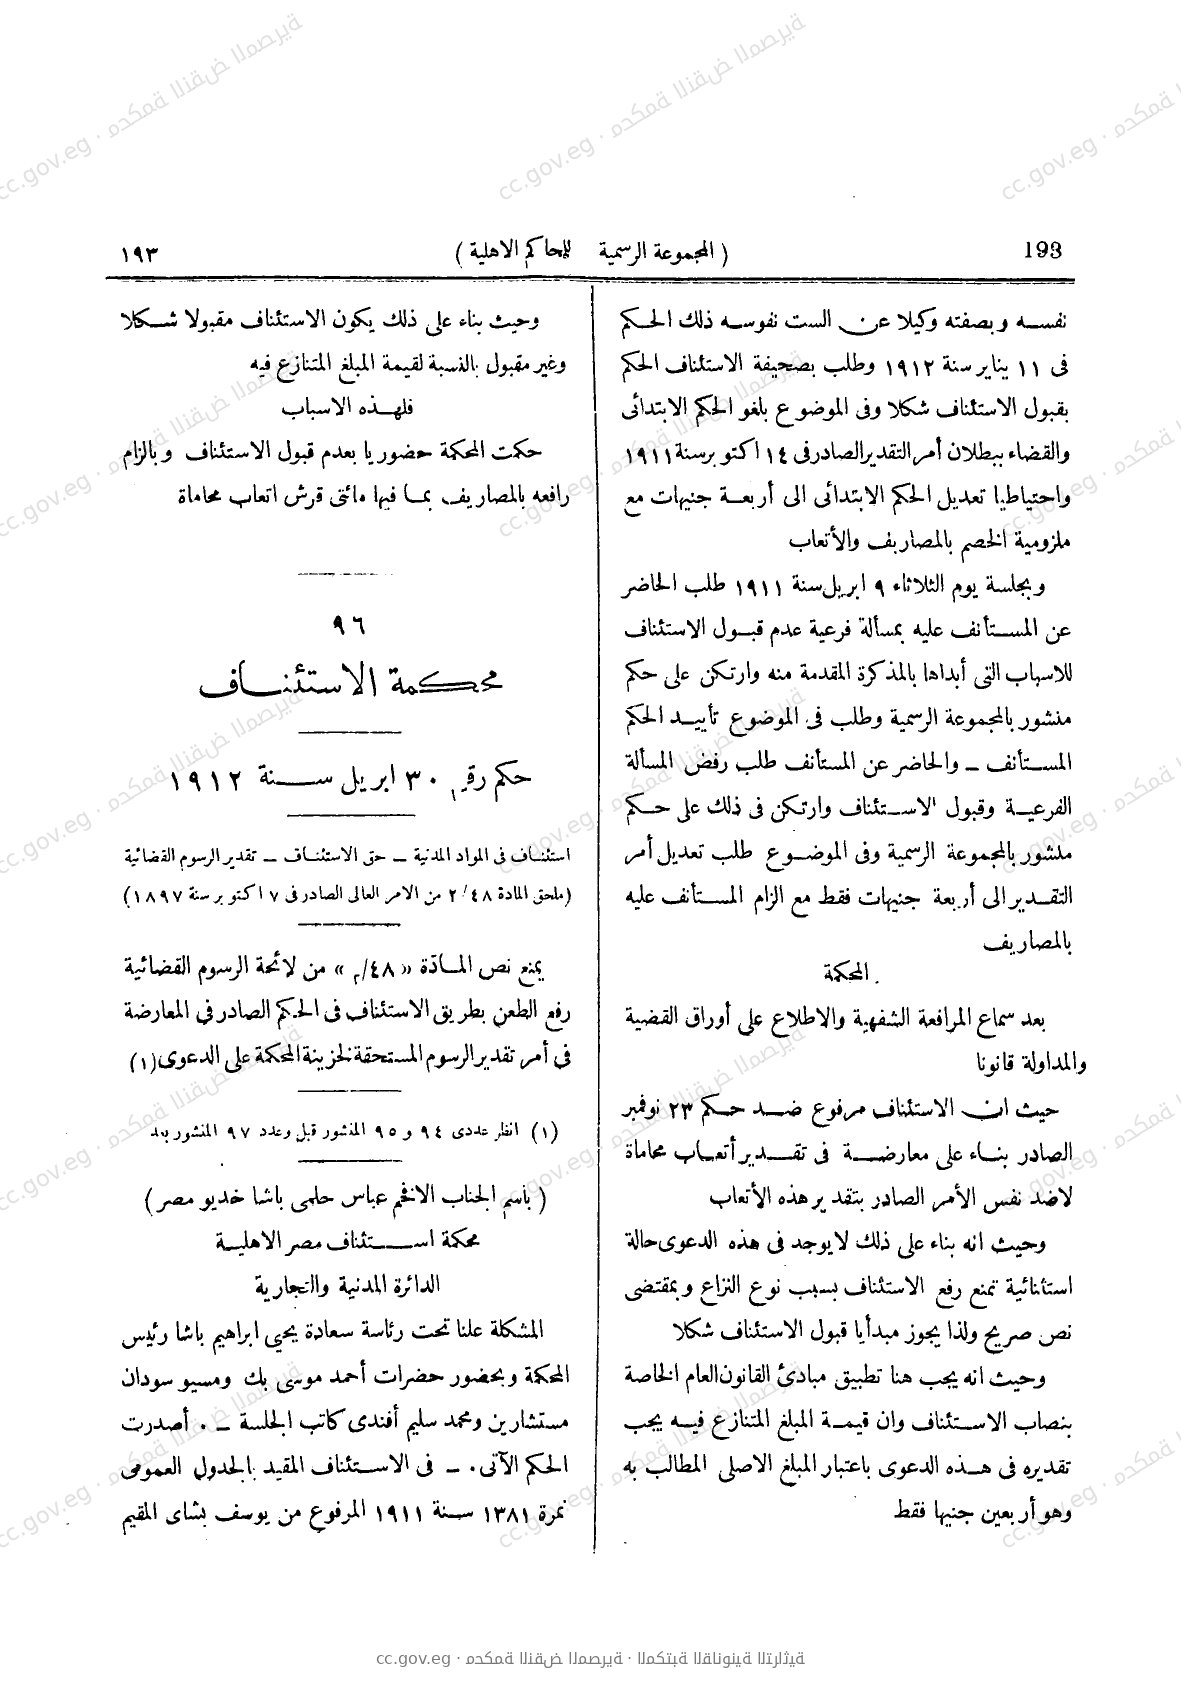 193 ( المجموعة الرسمية للمحاكم الاهلية ) ١٩٣
نفسه وبصفته وكيلا عن الست نفوسه ذلك الحكم
فى ١١ يناير سنة ١٩١٢ وطلب بصحيفة الاستئناف الحكم
بقبول الاستئناف شكلا وفى الموضوع بلغو الحكم الابتدائى
والقضاء ببطلان أمر التقدير الصادر فى ١٤ اكتوبر سنة ١٩١١
واحتياطيا تعديل الحكم الابتدائى الى أربعة جنيهات مع
ملزومية الخصم بالمصاريف والأتعاب
وبجلسة يوم الثلاثاء ٩ ابريل سنة ١٩١١ طلب الحاضر
عن المستأنف عليه بمسألة فرعية عدم قبول الاستئناف
للاسباب التى أبداها بالمذكرة المقدمة منه وارتكن على حكم
منشور بالمجموعة الرسمية وطلب فى الموضوع تأييد الحكم
المستأنف ــ والحاضر عن المستأنف طلب رفض المسألة
الفرعية وقبول الاستئناف وارتكن فى ذلك على حكم
منشور بالمجموعة الرسمية وفى الموضوع طلب تعديل أمر
التقدير الى أربعة جنيهات فقط مع الزام المستأنف عليه
بالمصاريف
المحكمة
بعد سماع المرافعة الشفهية والاطلاع على أوراق القضية
والمداولة قانونا
حيث ان الاستئناف مرفوع ضد حكم ٢٣ نوفمبر
الصادر بناء على معارضة فى تقدير أتعاب محاماة
لاضد نفس الأمر الصادر بتقدير هذه الأتعاب
وحيث انه بناء على ذلك لا يوجد فى هذه الدعوى حالة
استثنائية تمنع رفع الاستئناف بسبب نوع النزاع وبمقتضى
نص صريح ولذا يجوز مبدأيا قبول الاستئناف شكلا
وحيث انه يجب هنا تطبيق مبادئ القانون العام الخاصة
بنصاب الاستئناف وان قيمة المبلغ المتنازع فيه يجب
تقديره فى هذه الدعوى باعتبار المبلغ الاصلى المطالب به
وهو أربعين جنيها فقط
وحيث بناء على ذلك يكون الاستئناف مقبولا شكلا
وغير مقبول بالنسبة لقيمة المبلغ المتنازع فيه
فلهذه الاسباب
حكمت المحكمة حضوريا بعدم قبول الاستئناف وبالزام
رافعه بالمصاريف بما فيها مائتى قرش اتعاب محاماة
٩٦
محكمة الاستئناف
حكم رقم ٣٠ ابريل سنة ١٩١٢
استئناف فى المواد المدنية ــ حق الاستئناف ــ تقدير الرسوم القضائية
(ملحق المادة ٢/٤٨ من الامر العالى الصادر فى ٧ اكتوبر سنة ١٨٩٧)
يمنع نص المادة «٤٨/م» من لائحة الرسوم القضائية
رفع الطعن بطريق الاستئناف فى الحكم الصادر فى المعارضة
فى أمر تقدير الرسوم المستحقة لخزينة المحكمة على الدعوى (١)
(١) انظر عددى ٩٤ و ٩٥ المنشور قبل وعدد ٩٧ المنشور بعد
( باسم الجناب الافخم عباس حلمى باشا خديو مصر )
محكمة استئناف مصر الاهلية
الدائرة المدنية والتجارية
المشكلة علنا تحت رئاسة سعادة يحيى ابراهيم باشا رئيس
المحكمة وبحضور حضرات أحمد موسى بك ومسيو سودان
مستشارين ومحمد سليم أفندى كاتب الجلسة ــ . أصدرت
الحكم الآتى . ــ فى الاستئناف المقيد بالجدول العمومى
نمرة ١٣٨١ سنة ١٩١١ المرفوع من يوسف بشاى المقيم
cc.gov.eg · محكمة النقض المصرية · المكتبة القانونية التراثية